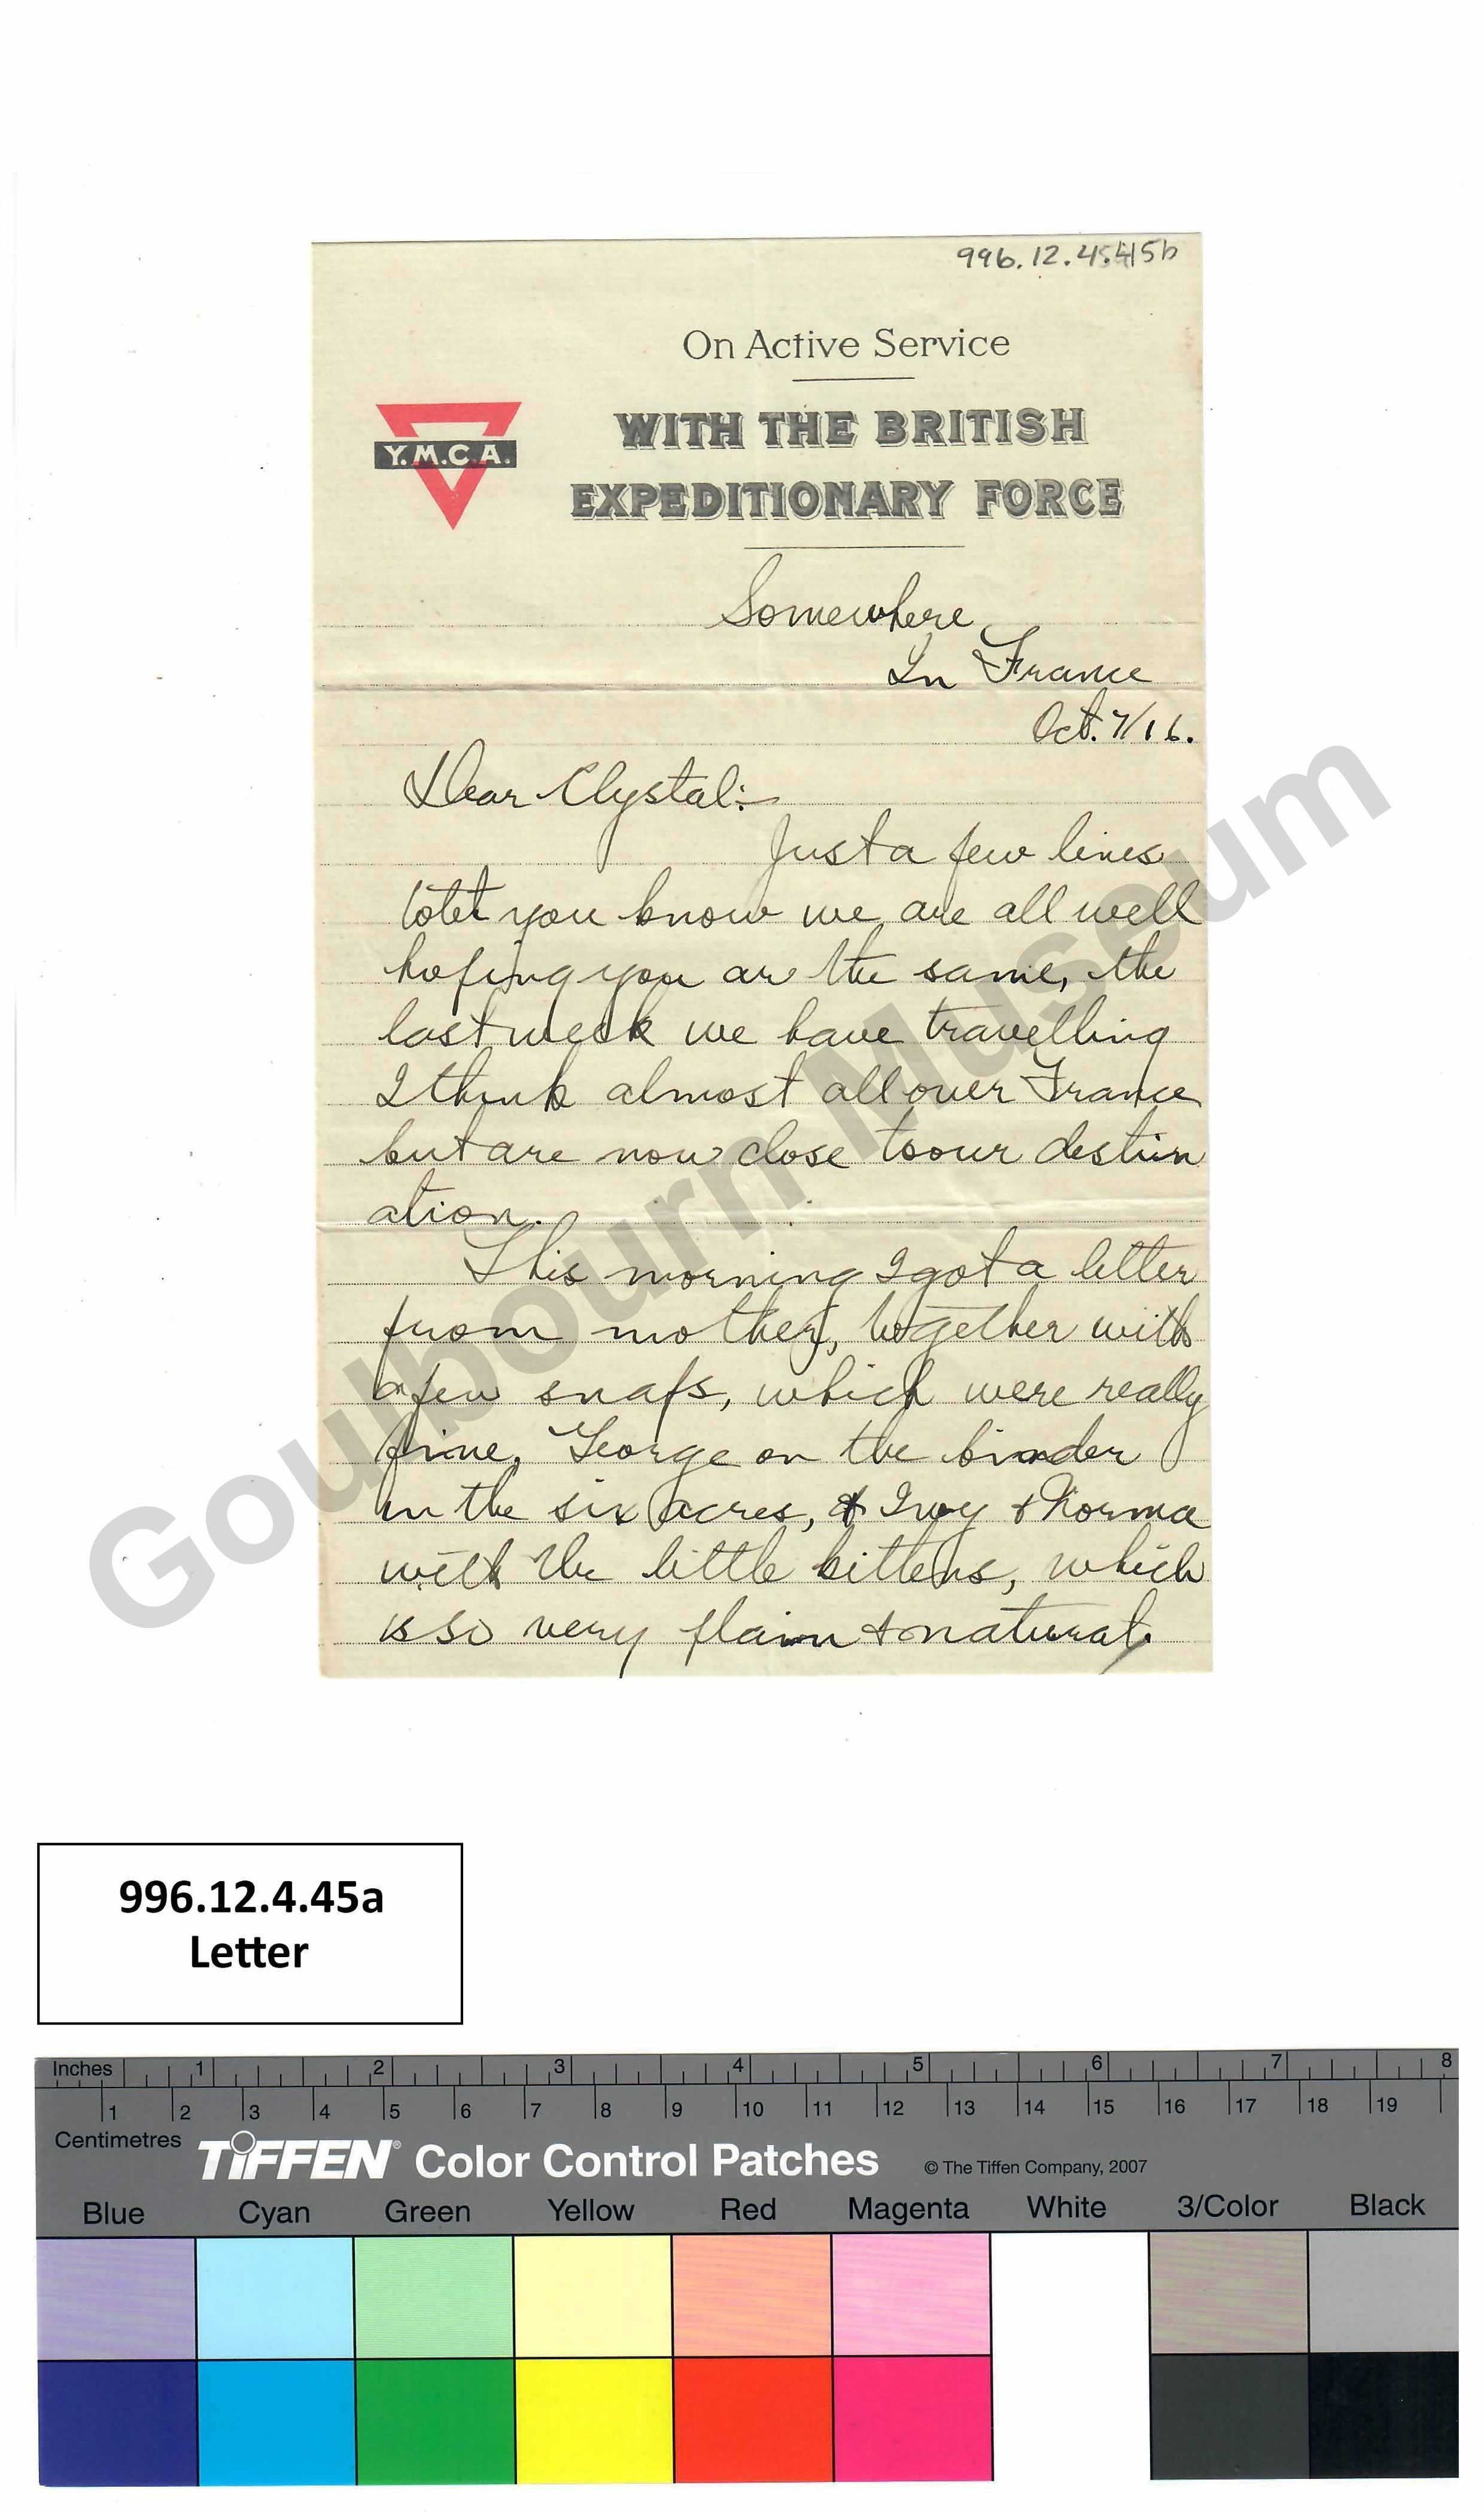 996.12.4.45b
On Active Service
WITH THE BRITISH
EXPEDITIONARY FORCE
Y.M.C.A.
Somewhere
In France
Oct. 7/16.
Dear Clystal:-
Just a few lines
to let you know we are all well
hoping you ar the same, the
last week we have travelling
I think almost all over France
but are now close to our destin
ation.
This morning I got a letter
from mother, together with
a few snaps, which were really
fine, George on the binder
in the six acres, & Ivy & Norma
with the little kittens, which
is so very plain & natural.
Goulbourn Museum
996.12.4.45a
Letter
Inches 1 2 3 4 5 6 7 8
1 2 3 4 5 6 7 8 9 10 11 12 13 14 15 16 17 18 19
Centimetres
TIFFEN® Color Control Patches © The Tiffen Company, 2007
Blue Cyan Green Yellow Red Magenta White 3/Color Black